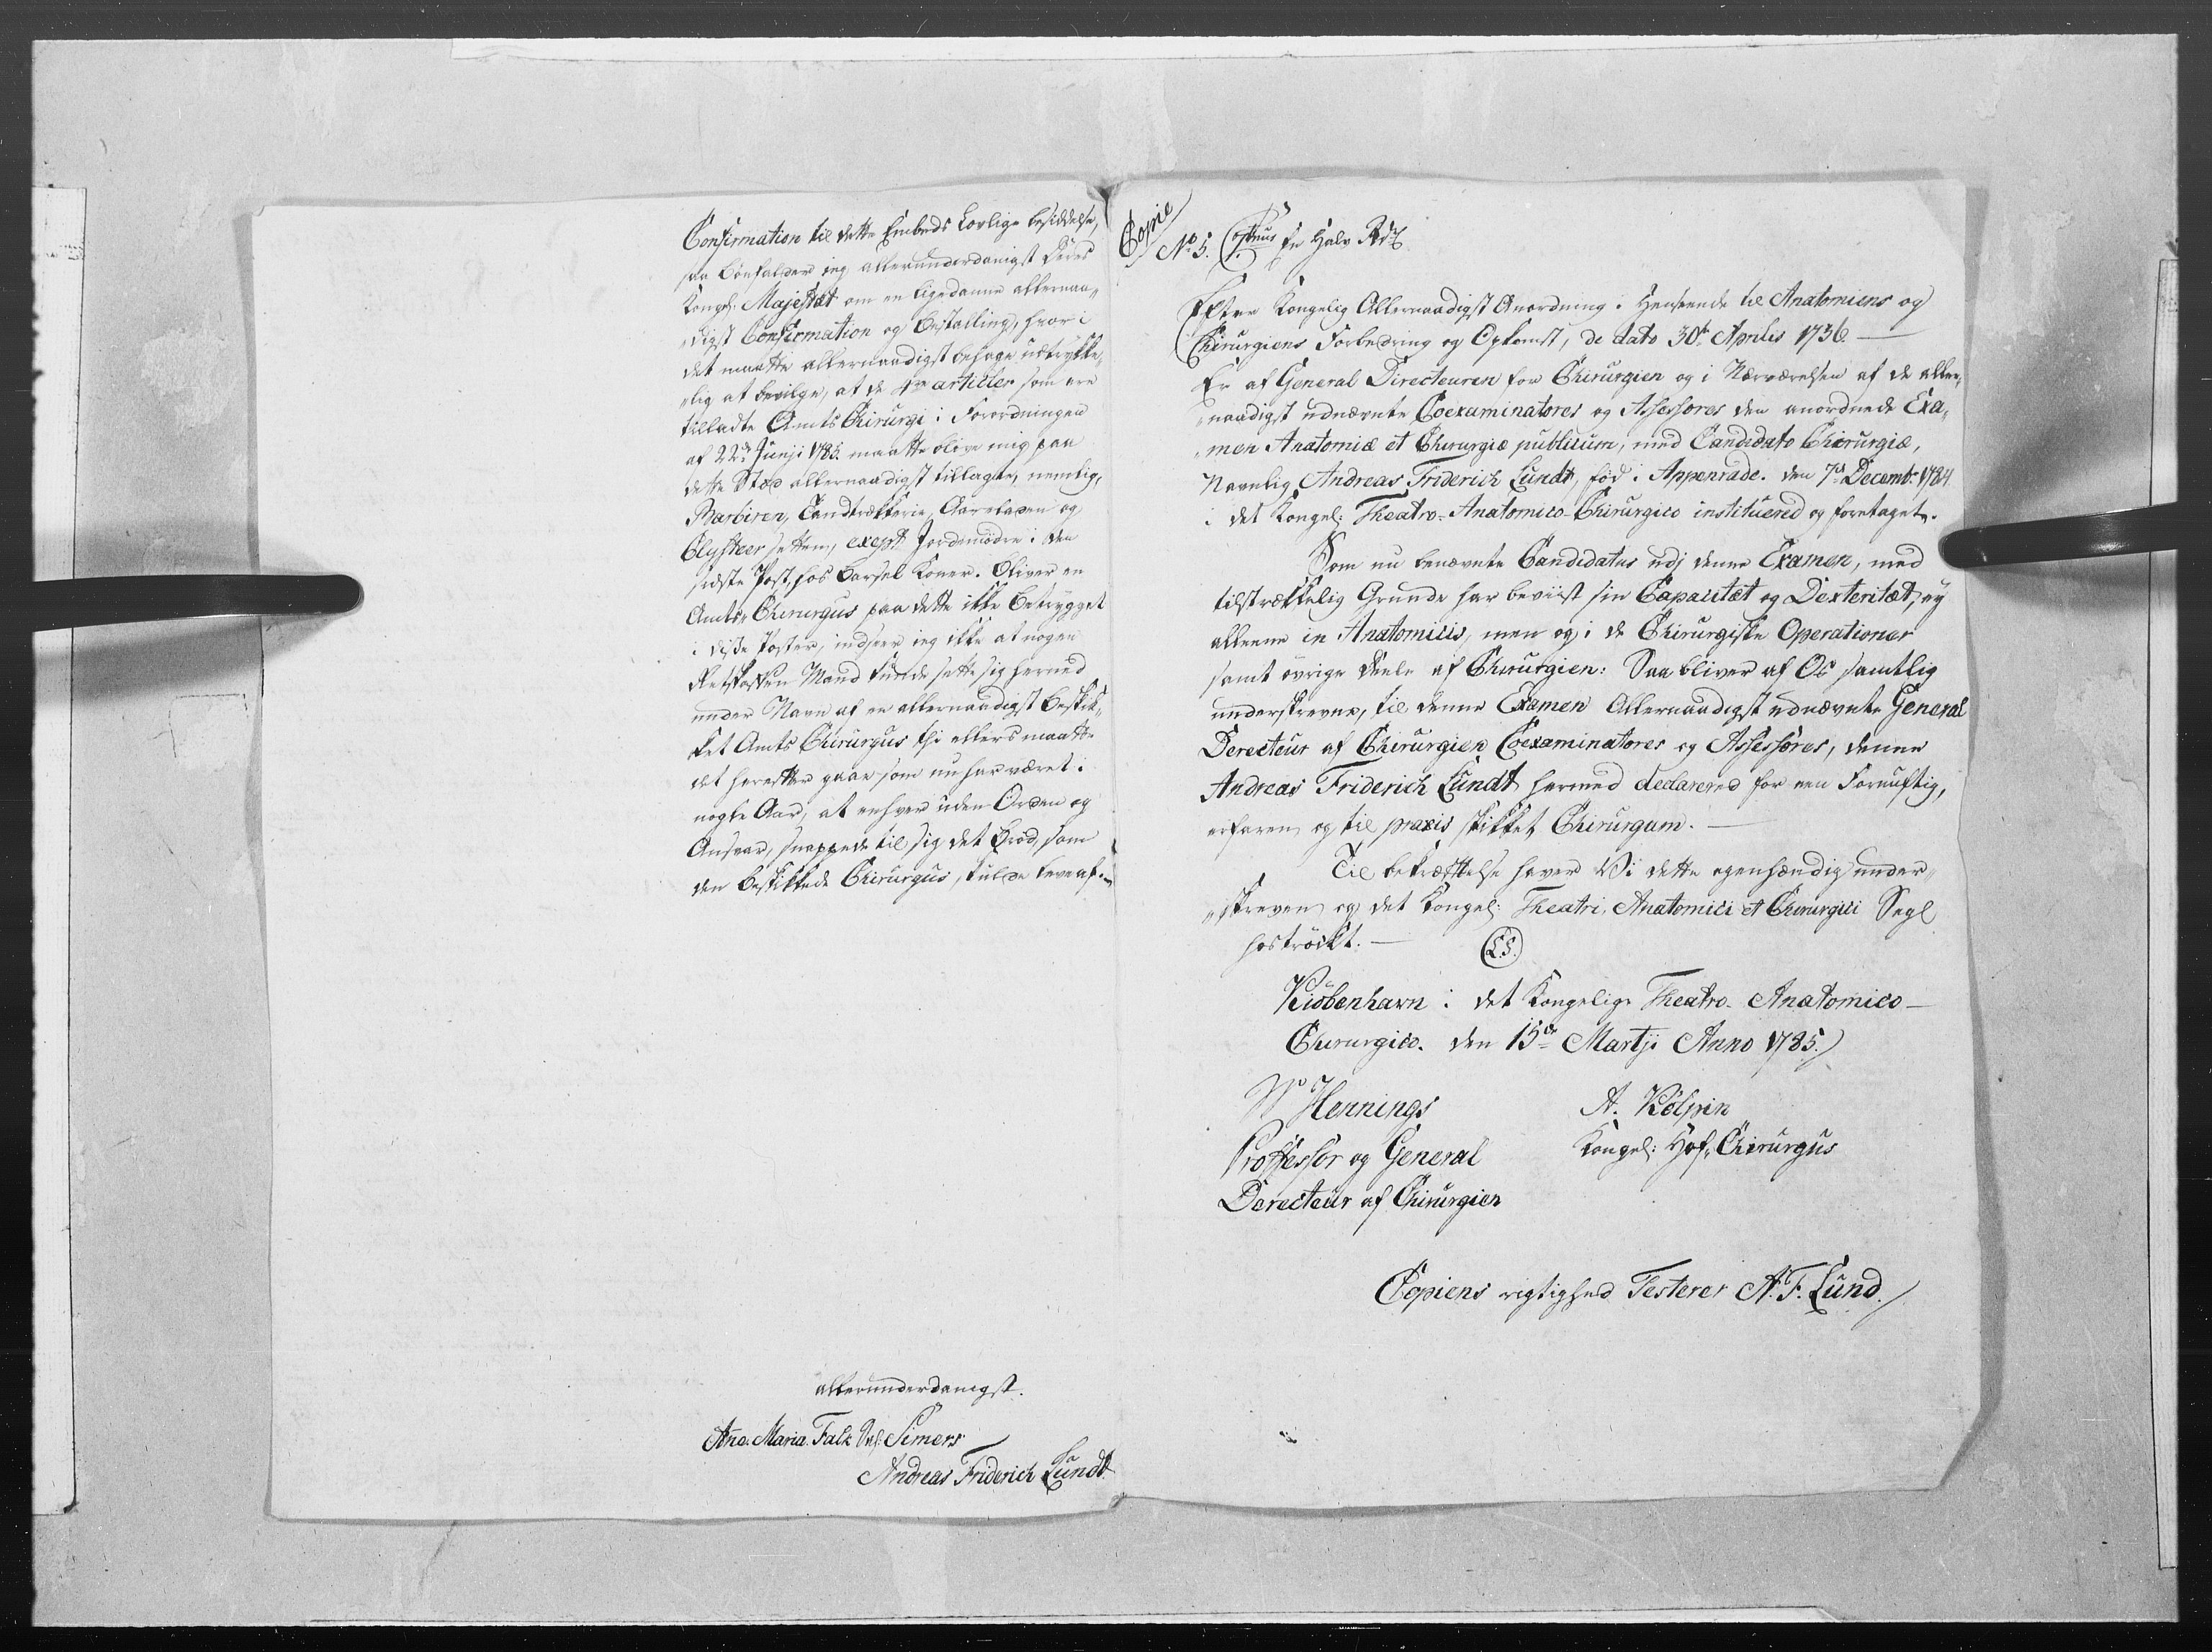 Confirmation til dette Embeds Lovlige besiddelse,
saa bönfalder ieg allerunderdanigst Deres
Kongel: Majestæt om en ligedanne allernaa-
„digst Confirmation og Bestalling, hvor i
det maatte allernaadigst behage udtrykke„
„lig at bevilge, at de 4re articler som ere
tilladte Amts Chirurgi i Forordningen
af 22d Junji 1785. maatte blive mig paa
dette Stæd allernaadigst tillagte, nemlig,
Barbiren, Tandtrækkerie, Aareladen og
Clysteer setten, exept Jordemödre i den
sidste Post, hos Barsel Koner. Bliver en
Amts-Chirurgus paa dette ikke betrygget
i disse Poster, indseer ieg ikke at nogen
Retskaffen Mand kunde sette sig herned
under Navn af en allernaadigst beskik„
ket Amts Chirurgus thi ellers maatte
det herefter gaae som nu har været i
nogle Aar, at enhver uden Orden og
Ansvar, snappede til sig det Bröd, som
den beskikkede Chirurgus, skulde leve af.
allerunderdanigst.
Ane Maria Falk Sal: Simers
Andreas Friderich Lundt
Copie
No 5. en Halv Rdlr
Efter Kongelig Allernaadigst Anordning i Henseende til Anatomiens og
Chirurgiens Forbedring og Opkomst, de dato 30t Aprilis 1736 —
Er af General Directeuren for Chirurgien og i Nærværelsen af de aller„
„naadigst udnævnte Coexaminatores og Assessores den anordnede Exa„
„men Anatomiæ et Chirurgiæ publicum, med Candidato Chirurgiæ,
Navnlig Andreas Friderich Lundt, föd i Appenrade. den 7d Decemb. 1784
i det Kongel: Theatro-Anatomico-Chirurgico instituered og foretaget.
Som nu benævnte Candidatus udj denne Examen, med
tilstrækkelig Grunde har beviist sin Capacitæt og Dexteritæt, ey
alleene in Anatomicis, men og i de Chirurgiske Operationer
samt övrige Deele af Chirurgien: Saa bliver af Os samtlig
underskrevne, til denne Examen Allernaadigst udnævnte General
Derecteur af Chirurgien Coexaminatores og Assessores, denne
Andreas Friderich Lundt hermed declarered for een Fornuftig,
erfaren og til praxis skikket Chirurgum. —
Til bekræfttelse haver Vi dette egenhændig under„
„skreven og det Kongel: Theatri Anatomici et Chirurgici Segl
hoströckt. —
L.S.
Kiöbenhavn i det Kongelige Theatro-Anatomico-
Chirurgico. den 15de Martji Anno 1785.
W Hennings
Proffessor og General
Derecteur af Chirurgien
A. Kölpin
Kongel: Hof-Chirurgus
Copiens rigtighed Testerer A. F. Lund.